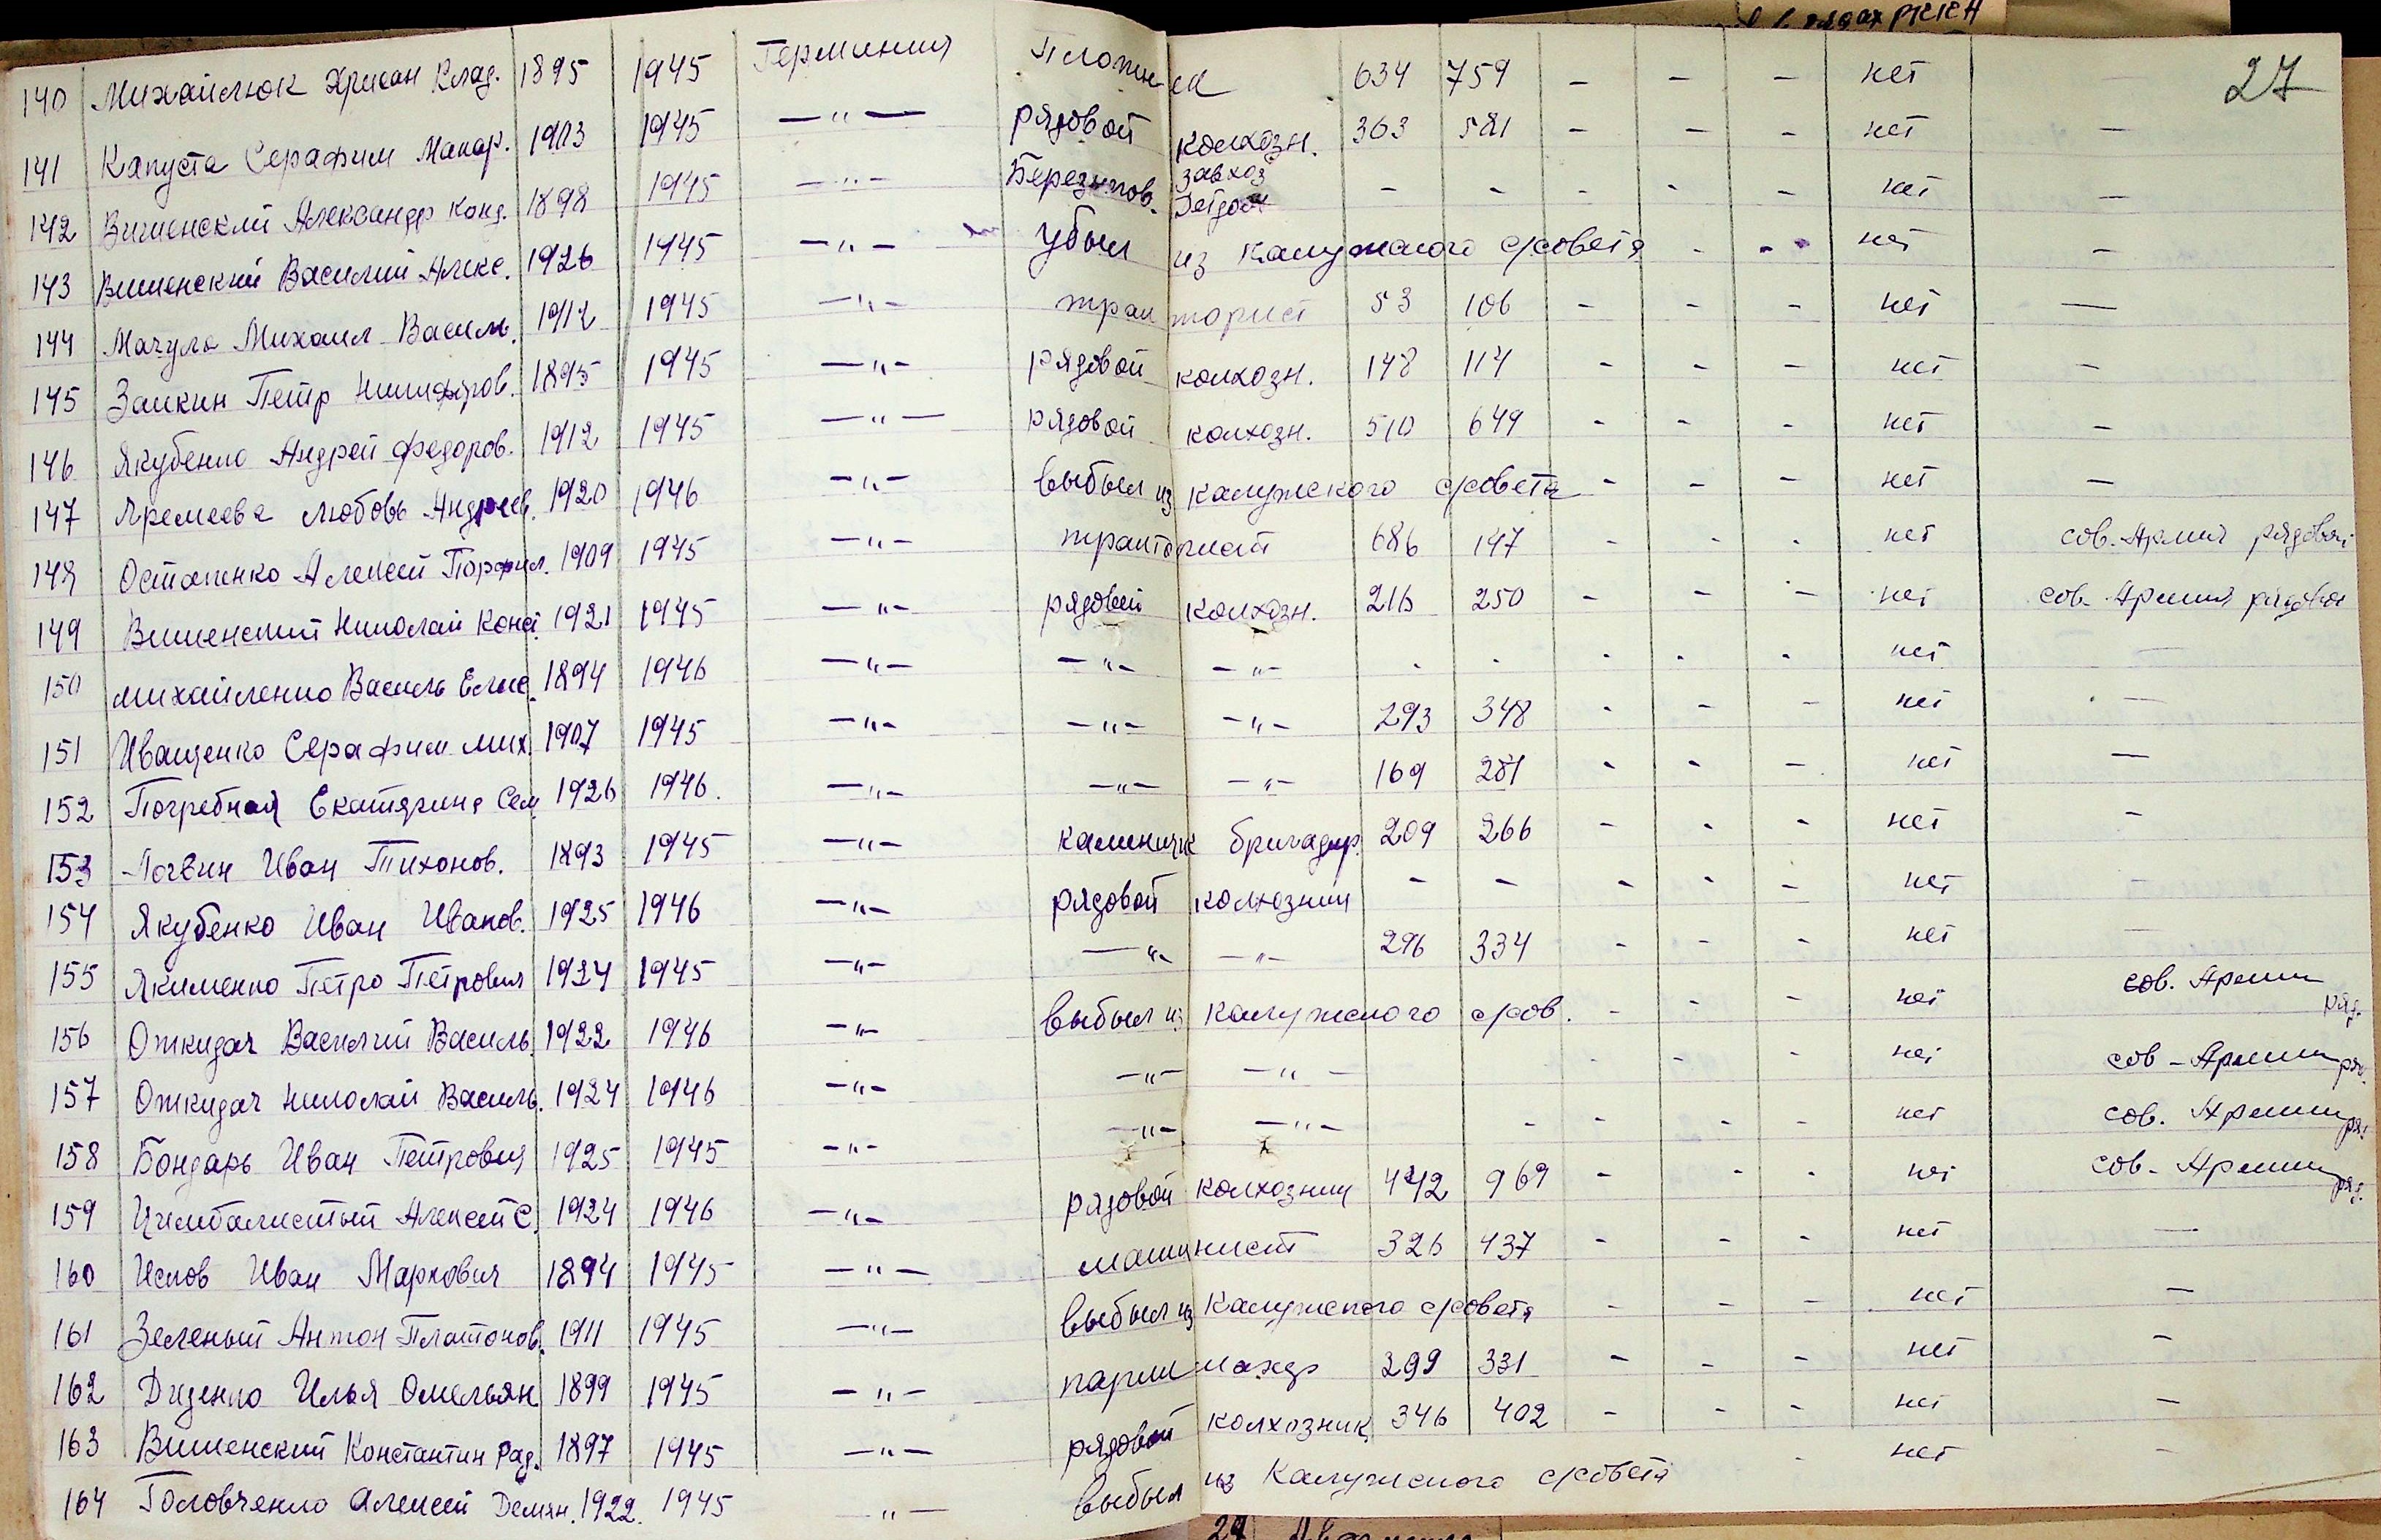 в рядах РККА
27
140 Михайлюк Хрисан Влад. 1895 1945 Германия Плотник 634 759 - - - нет —
141 Капуста Серафим Макар. 1903 1945 —"— рядовой колхозн. 363 581 - - - нет —
142 Вишенский Александр Конд. 1898 1945 —"— Березнпов. завхоз Детдом - - - - - нет —
143 Вишенский Василий Алекс. 1926 1945 —"— Убыл из Калужского с/совета - - нет —
144 Мачула Михаил Василь. 1912 1945 —"— тракторист 53 106 - - - нет —
145 Заикин Петр Никифоров. 1895 1945 —"— рядовой колхозн. 148 114 - - - нет —
146 Якубенко Андрей Федоров. 1912 1945 —"— рядовой колхозн. 510 649 - - - нет —
147 Яремеева Любовь Андреев. 1920 1946 —"— выбыл из Калужского с/совета - - - нет —
148 Остапенко Алексей Порфил. 1909 1945 —"— тракторист 686 147 - - - нет сов. Армия рядовой
149 Вишенский Николай Конст. 1921 1945 —"— рядовой колхозн. 216 250 - - - нет сов. Армия рядовой
150 Михайленко Василь Елис. 1894 1946 —"— —"— —"— - - - - - нет —
151 Иващенко Серафим Мих. 1907 1945 —"— —"— —"— 293 348 - - - нет —
152 Погребная Екатярина Сем. 1926 1946. —"— —"— —"— 169 281 - - - нет —
153 Логвин Иван Тихонов. 1893 1945 —"— каменщик бригадир. 209 266 - - - нет —
154 Якубенко Иван Иванов. 1925 1946 —"— рядовой колхозник - - - - - нет -
155 Якименко Петро Петрович 1924 1945 —"— —"— —"— 296 334 - - - нет —
156 Откидач Василий Василь. 1922 1946 —"— выбыл из Калужского с/сов. - - - нет сов. Армии ряд.
157 Откидач Николай Василь. 1924 1946 —"— —"— —"— - - - нет сов - Армии ряд.
158 Бондарь Иван Петрович 1925 1945 —"— —"— —"— - - - - нет сов. Армии ряд.
159 Цимбалистый Алексей С. 1924 1946 —"— рядовой колхозник 442 969 - - - нет сов - Армии ряд.
160 Иснов Иван Маркович 1894 1945 —"— машинист 326 437 - - - нет —
161 Зеленый Антон Платонов. 1911 1945 —"— выбыл из Калужского с/совета - - - нет —
162 Диденко Илья Омельян 1899 1945 —"— 299 331 - - - нет —
163 Вишенский Константин Рад. 1897 1945 —"— рядовой колхозник 346 402 - - - нет —
164 Головченко Алексей Демян. 1922. 1945 —"— выбыл из Калужского с/совета - нет —